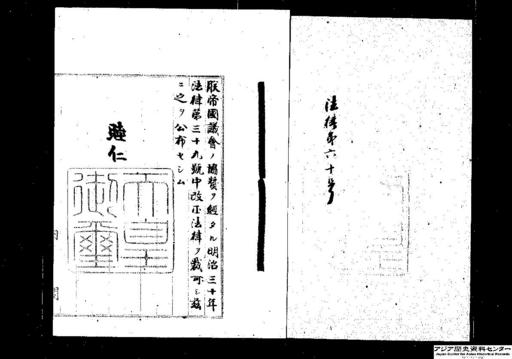 法律第六十号
朕帝國議會ノ協賛ヲ經タル明治三十年
法律第三十九號中改正法律ヲ裁可シ茲
ニ之ヲ公布セシム
睦仁
天皇
御璽
アジア歴史資料センター
Japan Center for Asian Historical Records